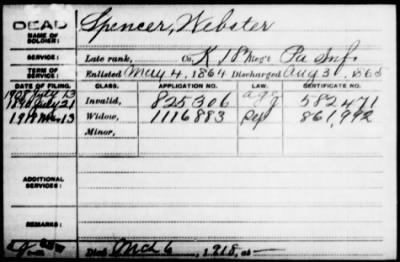 DEAD
NAME OF SOLDIER: Spencer, Webster
SERVICE: Late rank, Co. K Reg't Pa Inf.
TERM OF SERVICE: Enlisted May 4, 1864 Discharged Aug 31, 1865
DATE OF FILING. CLASS. APPLICATION NO. LAW. CERTIFICATE NO.
1908 July 13
July 21 Invalid, 825306 agg 582471
13 Widow, 1116883 861,992
Minor,
ADDITIONAL SERVICES:
REMARKS:
Died Mch 6, 1918, at —